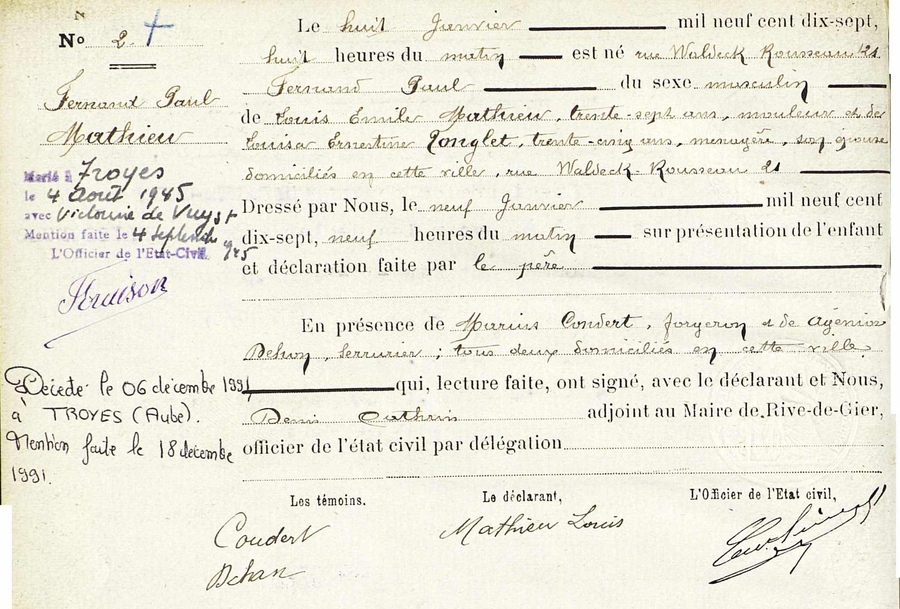 No 2
Fernand Paul
Mathieu
Marié à Troyes
le 4 août 1945
avec Victorine de Vuyst
Mention faite le 4 Septembre 1945
L'Officier de l'Etat-Civil
Le huit Janvier mil neuf cent dix-sept,
huit heures du matin est né rue Waldeck Rousseau 21
Fernand Paul du sexe masculin
de Louis Emile Mathieu, trente-sept ans, mouleur et de
Louisa Ernestine Longlet, trente-cinq ans, ménagère, son épouse
domiciliés en cette ville, rue Waldeck-Rousseau 21
Dressé par Nous, le neuf Janvier mil neuf cent
dix-sept, neuf heures du matin sur présentation de l'enfant
et déclaration faite par le père
En présence de Marius Condert, forgeron et de Agénior
Dehon, serrurier; tous deux domiciliés en cette ville.
qui, lecture faite, ont signé, avec le déclarant et Nous,
Denis adjoint au Maire de Rive-de-Gier,
officier de l'état civil par délégation
Décédé le 06 décembre 1991
à TROYES (Aube).
Mention faite le 18 décembre
1991.
Les témoins.
Le déclarant,
L'Officier de l'Etat civil,
Coudert
Mathieu Louis